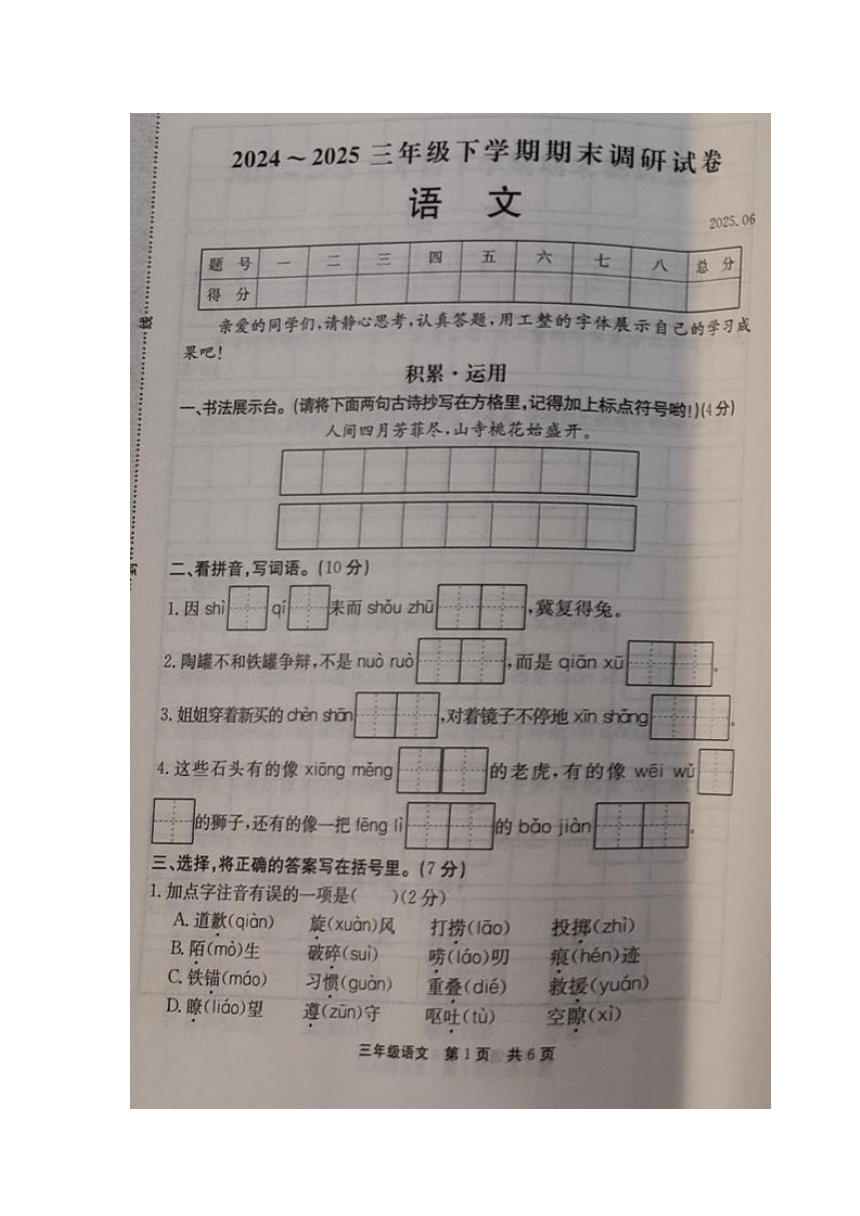 2024～2025三年级下学期期末调研试卷
语 文
2025.06
题 号 一 二 三 四 五 六 七 八 总 分
得 分
亲爱的同学们,请静心思考,认真答题,用工整的字体展示自己的学习成
果吧!
积累·运用
一、书法展示台。(请将下面两句古诗抄写在方格里,记得加上标点符号哟!)(4分)
人间四月芳菲尽,山寺桃花始盛开。
二、看拼音,写词语。(10分)
1.因 shì qí 耒而 shǒu zhū ,冀复得兔。
2.陶罐不和铁罐争辩,不是 nuò ruò ,而是 qiān xū 。
3.姐姐穿着新买的 chèn shān ,对着镜子不停地 xīn shǎng 。
4.这些石头有的像 xiōng měng 的老虎,有的像 wēi wǔ
的狮子,还有的像一把 fēng lì 的 bǎo jiàn 。
三、选择,将正确的答案写在括号里。(7分)
1.加点字注音有误的一项是( )(2分)
A.道歉(qiàn) 旋(xuàn)风 打捞(lāo) 投掷(zhì)
B.陌(mò)生 破碎(suì) 唠(láo)叨 痕(hén)迹
C.铁锚(máo) 习惯(guàn) 重叠(dié) 救援(yuán)
D.瞭(liáo)望 遵(zūn)守 呕吐(tù) 空隙(xì)
三年级语文 第1页 共6页
线